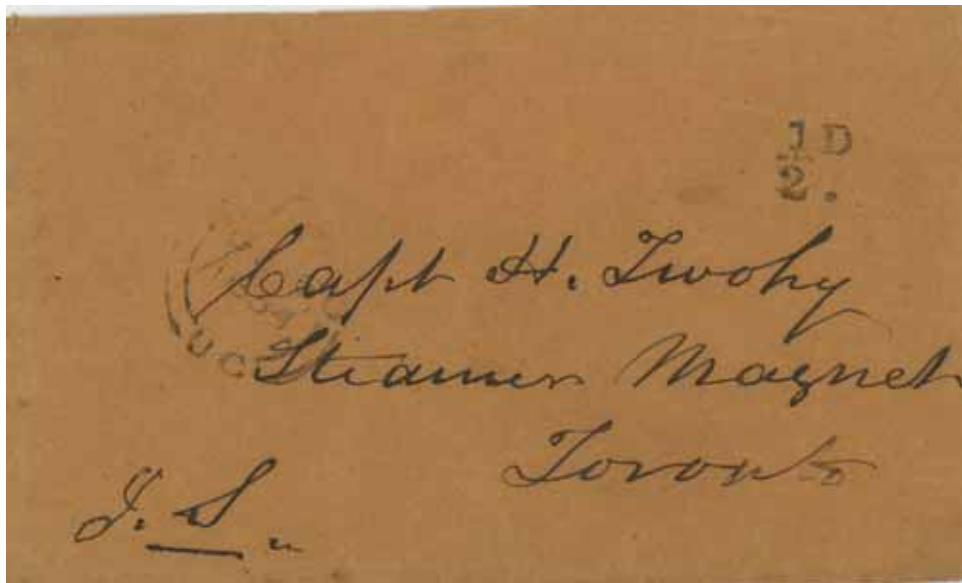 1 D
2.
Capt H. Twohy
U C
Steamer Magnet
Toronto
J. S.